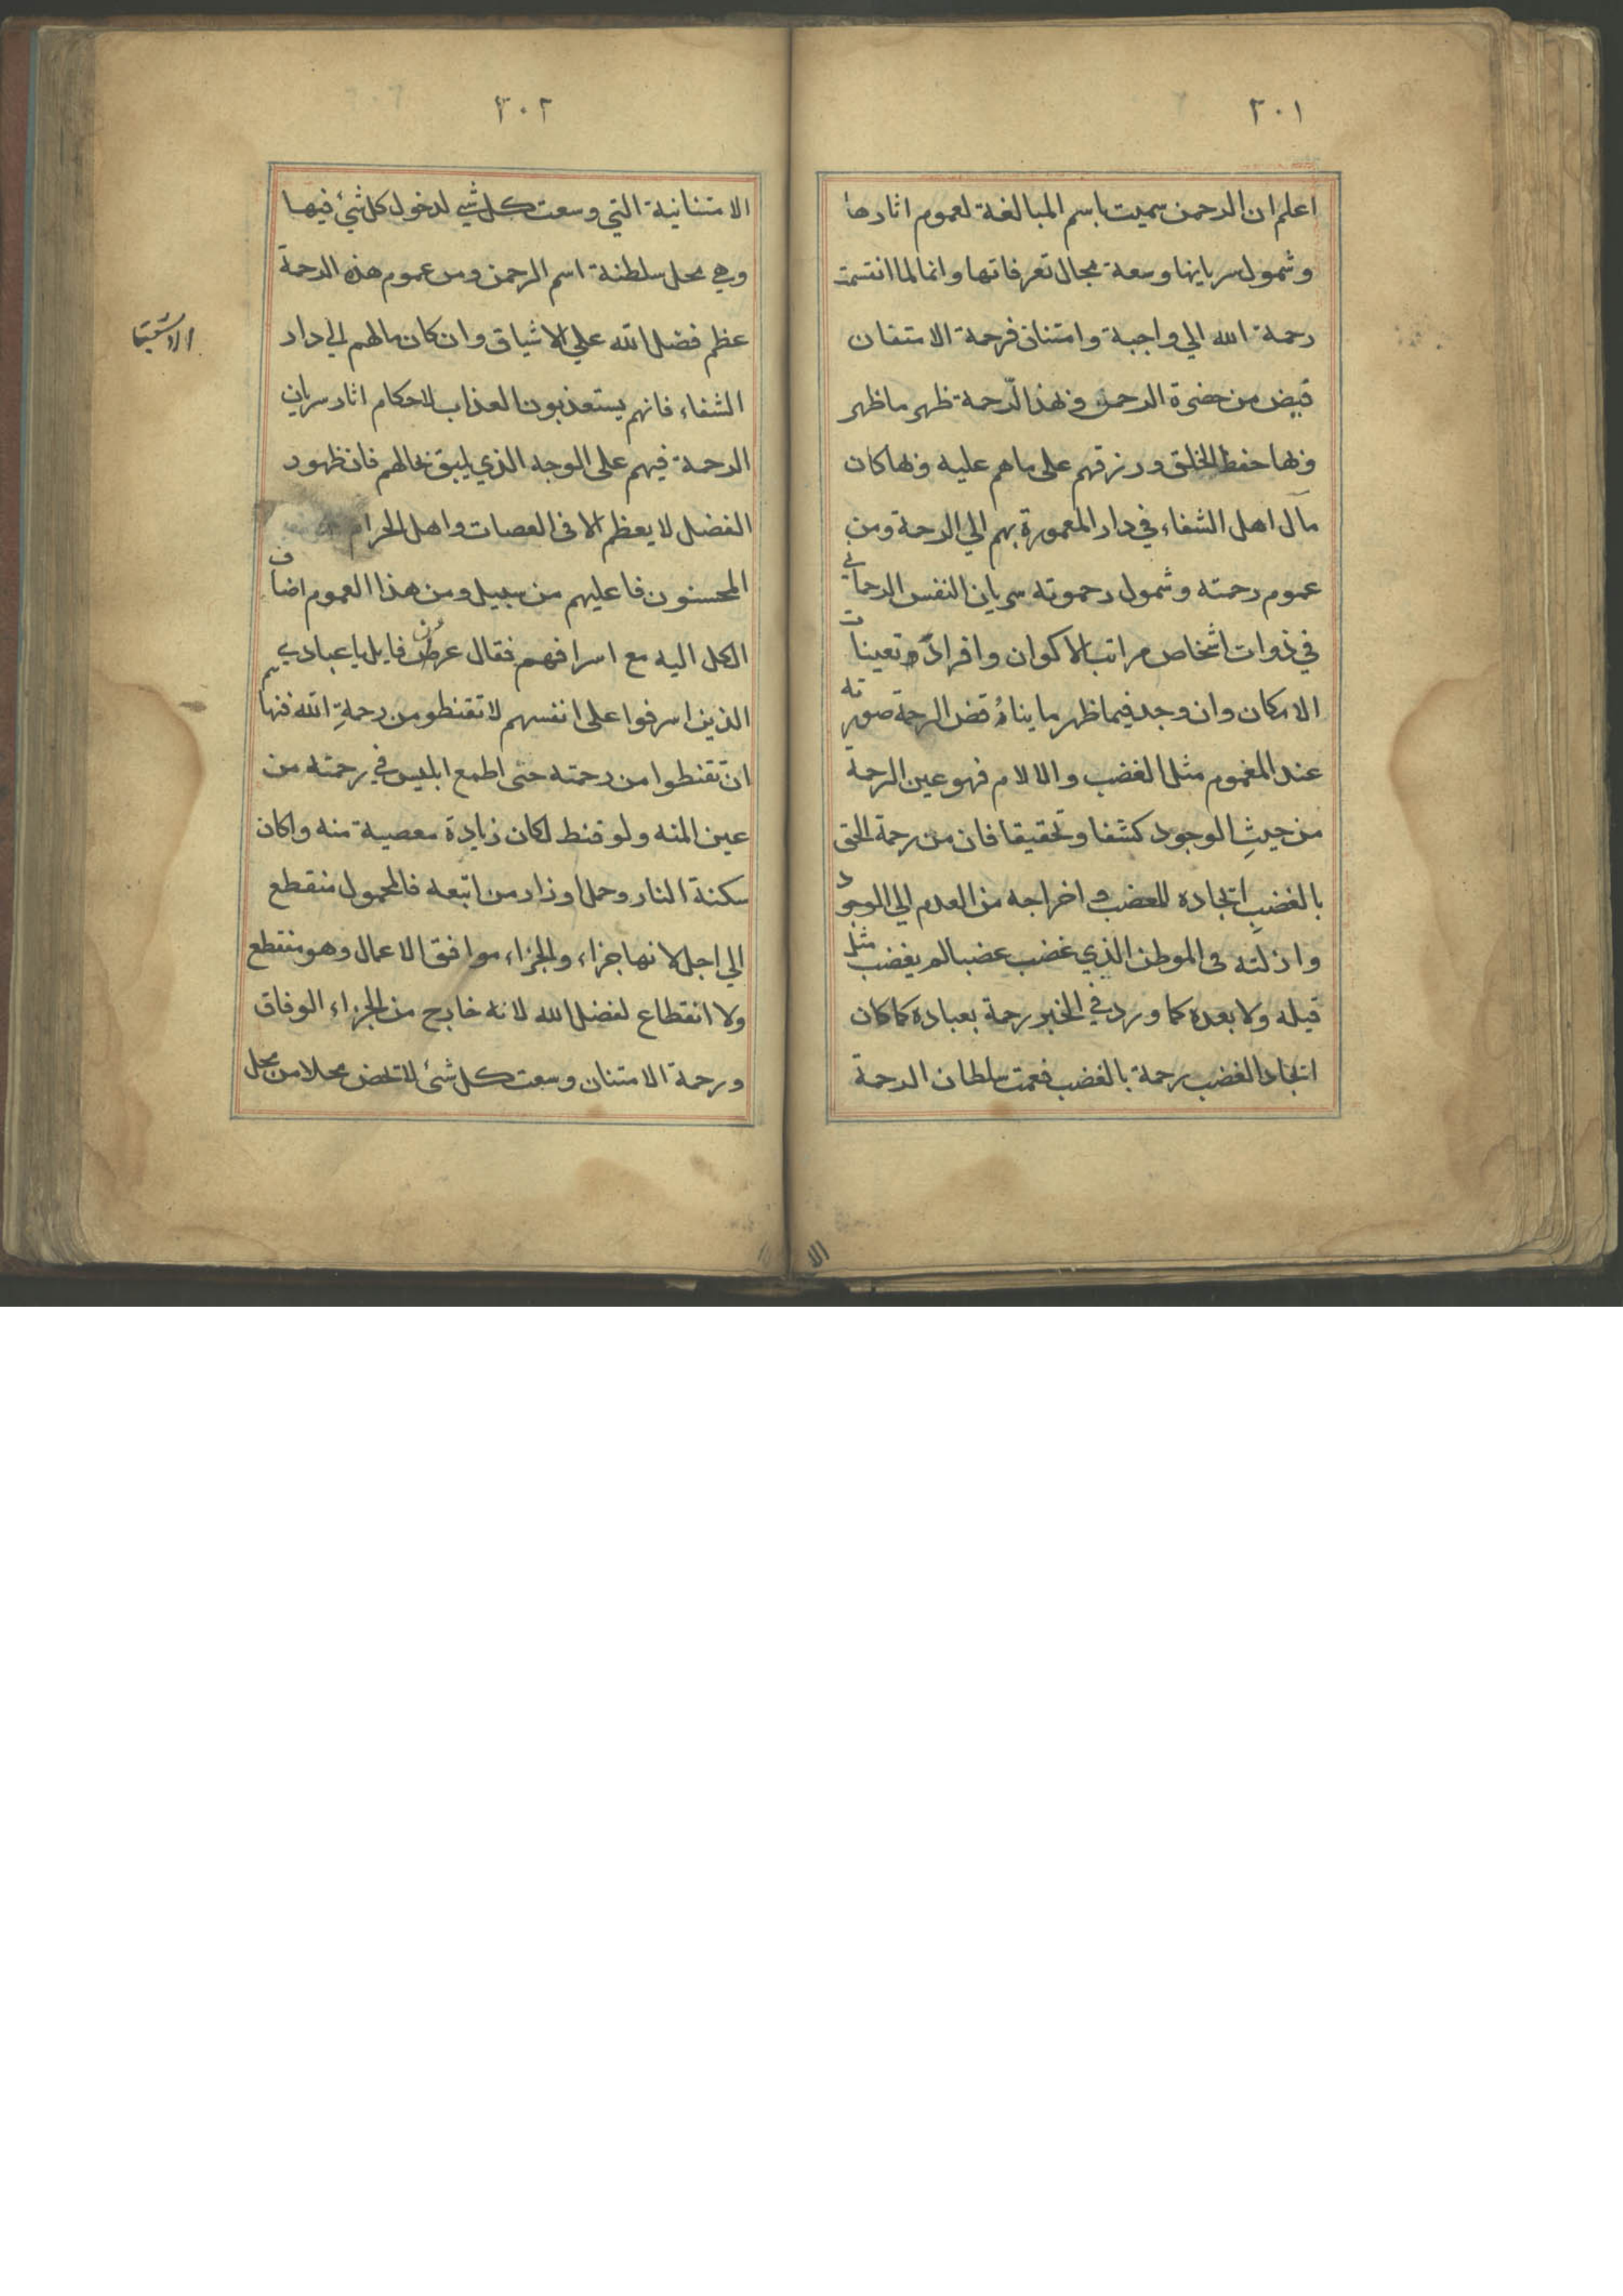 ٣٠١
اعلم ان الرحمن سميت باسم المبالغة لعموم اثارها
وشمول سريانها وسعة مجال تعرفاتها وانما لما انتسمت
رحمة الله الي واجبة وامتنان فرحمة الامتنان
قبض من حضرة الرحمن وبهذا الرحمة ظهر ما ظهر
وبها حفظ الخلق ورزقهم على ماهم عليه وبها كان
مآل اهل الشفاء في دار المعمورة بهم الي الرحمة ومن
عموم رحمته وشمول رحموته سريان النفس الرحماني
في ذوات اشخاص مراتب الاكوان وافراد وتعينات
الامكان وان وجد فيما ظهر ما ينا قض الرحمة صورته
عند المغموم مثل الغضب والالام فهو عين الرحمة
من حيثِ الوجود كشفا وتحقيقا فان من رحمة الحق
بالغضبِ اتجاده للغضب واخراجه من العدم الي الوجود
وان لته في الموطن الذي غضب غضبا لم يغضب مثل
قبله ولا بعده كما ورد في الخبر رحمة بعباده كما كان
اتجاد الغضب رحمة بالغضب فعمت سلطان الرحمة
الا
٣٠٢
الامتنانية التي وسعت كل شي لدخول كل شئ فيها
وهي محل سلطنة اسم الرحمن ومن عموم هذه الرحمة
عظم فضل الله علي الاشياق وان كان مالهم الي دار
الشفاء فانهم يستعذبون العذاب لاحكام اثار سريان
الرحمة فيهم على الوجه الذي يليق بحالهم فان ظهور
الفضل لا يعظم الا فى العصات واهل الحرام
المحسنون فا عليهم من سبيل ومن هذا العموم اضاف
الكل اليه مع اسرافهم فقال عز من فايل يا عبادي
الذين اسرفوا على انفسهم لا تقنطو من رحمةِ الله فنهاهم
ان تقنطوا من رحمته حتى اطمع ابليس في رحمته من
عين المنه ولو قنط لكان زيادة معصية منه وا كان
سكنة النار وحمل اوزار من اتبعه فالمحمول منقطع
الي اجل لانها جزاء والجزاء موافق الاعمال وهو منقطع
ولا انقطاع لفضل الله لانه خارج من الجزاء الوفاق
ورحمة الامتنان وسعت كل شئ لا تخض محلا من محل